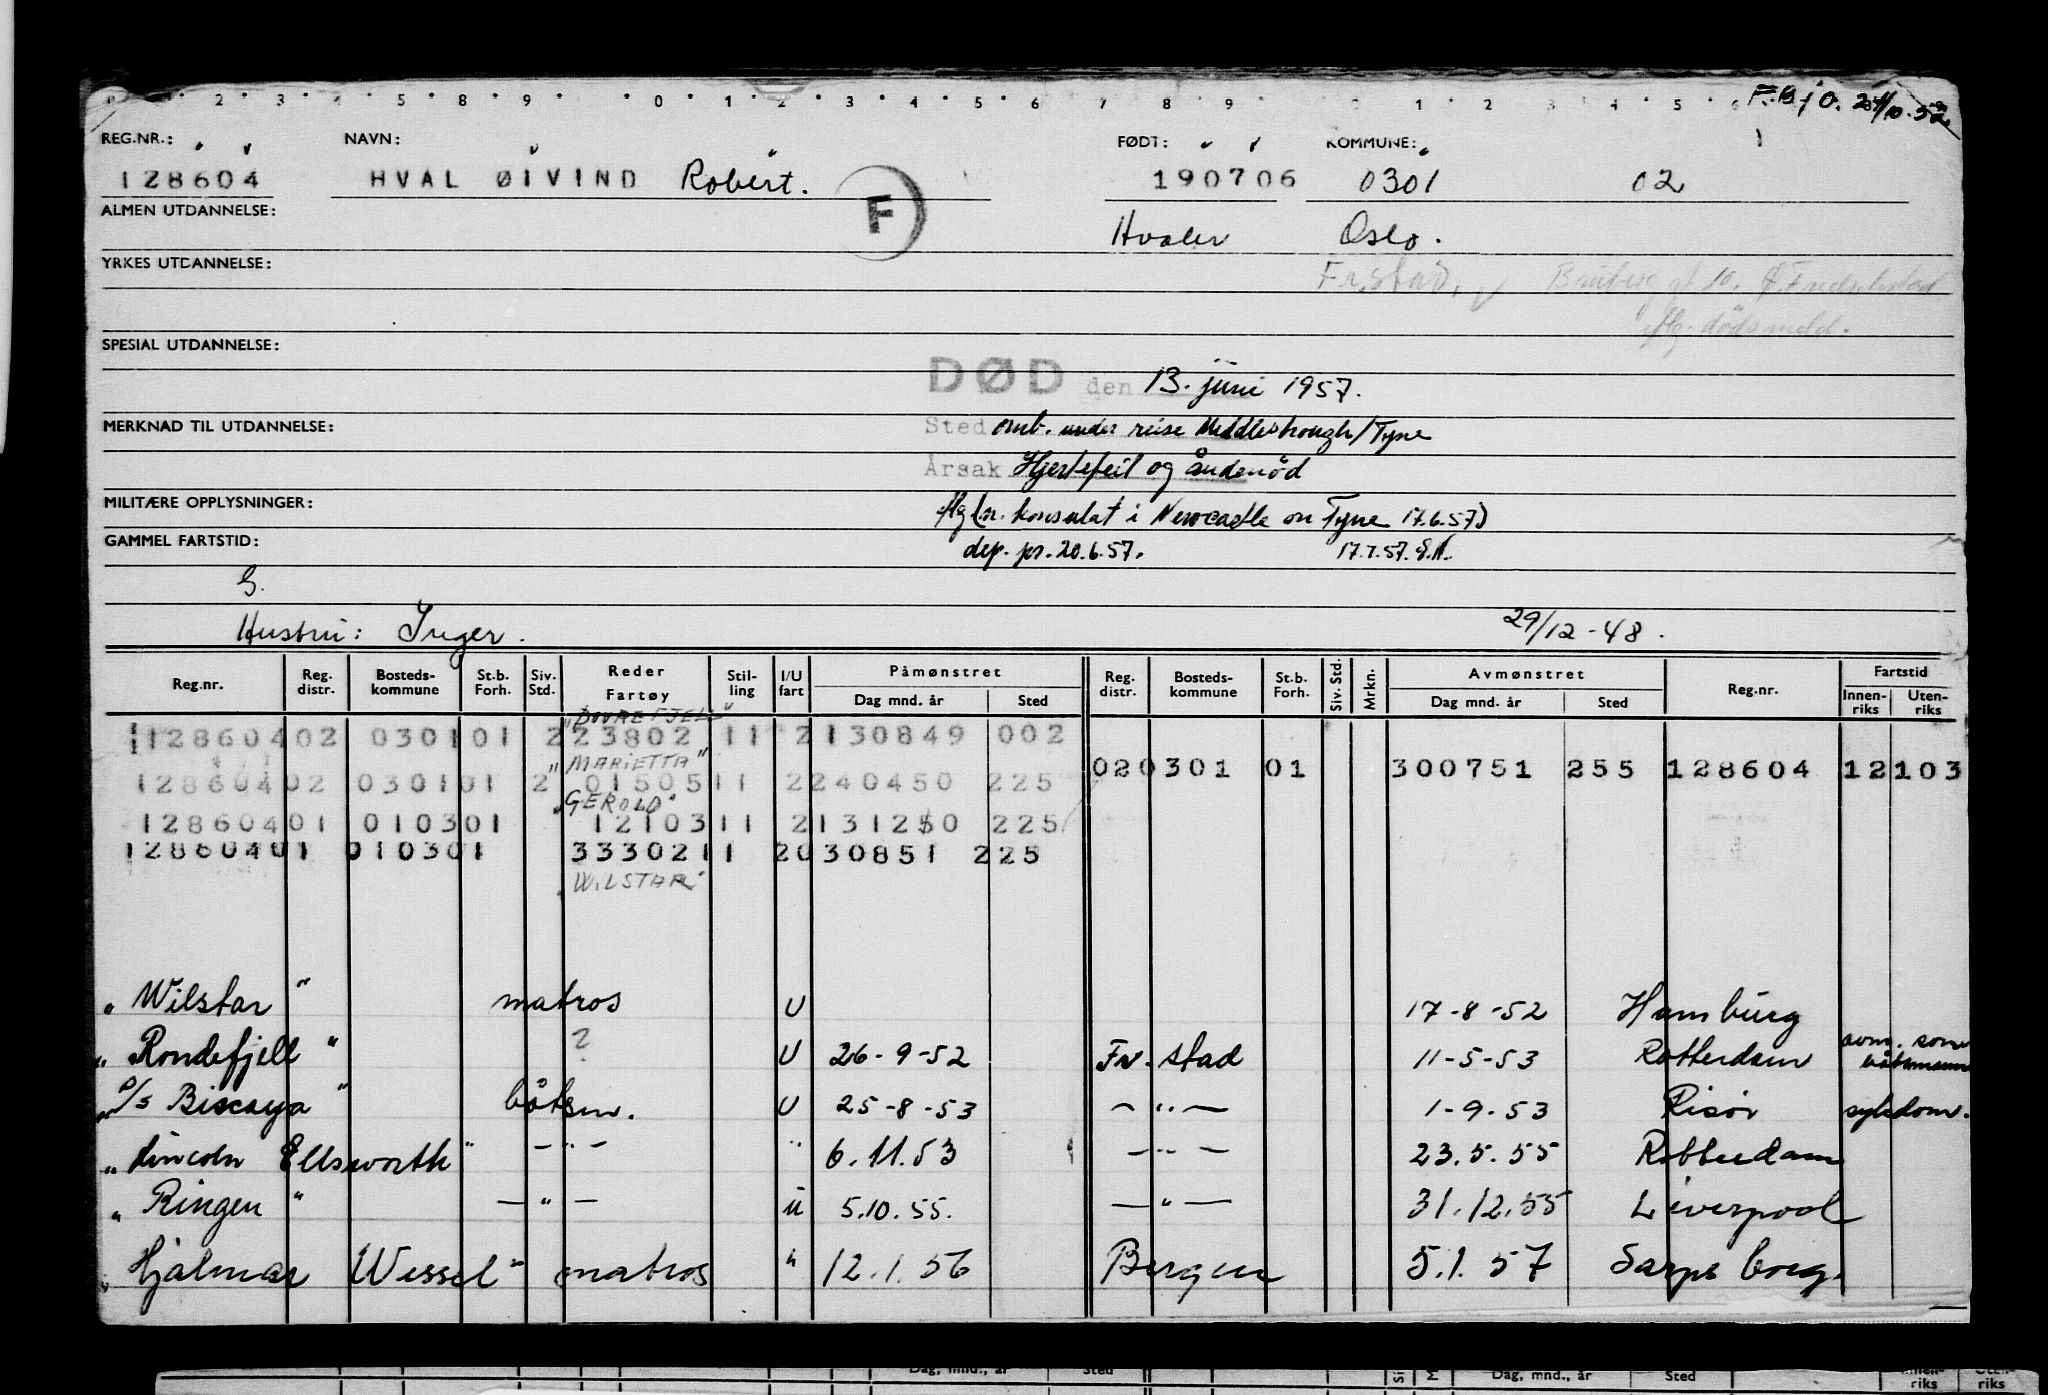 F.B.j O. 24/10.52
REG.NR.: NAVN: FØDT: KOMMUNE:
128604 HVAL ØIVIND Robert. F 190706 0301 02
ALMEN UTDANNELSE:
Hvaler Oslo.
YRKES UTDANNELSE:
Fr.stad, gt 10, Fredrikstad
iflg. dødsmeld.
SPESIAL UTDANNELSE:
DØD den 13. juni 1957.
MERKNAD TIL UTDANNELSE:
Sted omb. under reise Middlesbrough/Tyne
Årsak Hjertefeil og åndenød
MILITÆRE OPPLYSNINGER:
iflg (n. konsulat i Newcastle on Tyne 17.6.57)
GAMMEL FARTSTID:
dep. pr. 20.6.57. 17.7.57.
G.
Hustru: Inger. 29/12-48.
Reg.nr. Reg. distr. Bosteds-kommune St.b. Forh. Siv. Std. Reder Fartøy Stil-ling I/U fart Påmønstret Dag mnd. år Sted Reg. distr. Bosteds-kommune St.b. Forh. Siv. Std. Mrkn. Avmønstret Dag mnd. år Sted Reg.nr. Fartstid Innen-riks Uten-riks
"DOVREFJELL"
128604 02 0301 01 2 23802 11 2 130849 002
"MARIETTA"
020301 01 300751 255 128604 12103
128604 02 0301 01 2 01505 11 2 240450 225
"GEROLD"
128604 01 0103 01 12103 11 2 131250 225
128604 01 0103 01 33302 11 2 030851 225
"WILSTAR"
"Wilstar" matros U 17-8-52 Hamburg
"Rondefjell" ? U 26-9-52 Fr.stad 11-5-53 Rotterdam avm. som båtsmann
"D/s Biscaya" båtsm. U 25-8-53 — " — 1-9-53 Risør sykdom.
"Lincoln Ellsworth" — " — " 6.11.53 — " — 23.5.55 Rotterdam
"Ringen" — " — u 5.10.55. — " — 31.12.55 Liverpool
"Hjalmar Wessel" matros " 12.1.56 Bergen 5.1.57 Sarpsborg.
Dag, mnd., år Sted Dag, mnd., år Sted Innen-riks Uten-riks